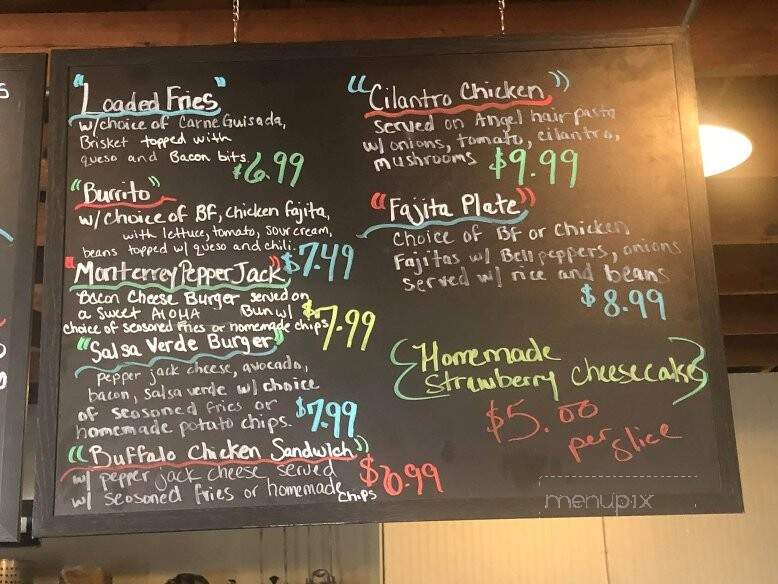 "Loaded Fries"
w/choice of Carne Guisada,
Brisket topped with
queso and Bacon bits. $6.99
"Burrito"
w/choice of BF, chicken fajita,
with lettuce, tomato, sour cream,
beans topped w/ queso and chili. $7.49
"Monterrey Pepper Jack"
Bacon Cheese Burger served on
a Sweet AlOHA Bun w/ $7.99
choice of seasoned fries or homemade chips
"Salsa Verde Burger"
pepper jack cheese, avocado,
bacon, salsa verde w/ choice
of seasoned fries or
homemade potato chips. $7.99
"Buffalo Chicken Sandwich"
w/ pepper jack cheese served $6.99
w/ seosoned fries or homemade chips
"Cilantro Chicken"
Served on Angel hair pasta
w/ onions, tomato, cilantro,
mushrooms $9.99
"Fajita Plate"
Choice of BF or Chicken
Fajitas w/ Bell peppers, onions
served w/ rice and beans
$8.99
Homemade
Strawberry cheesecake
$5.00
per slice
menupix
S